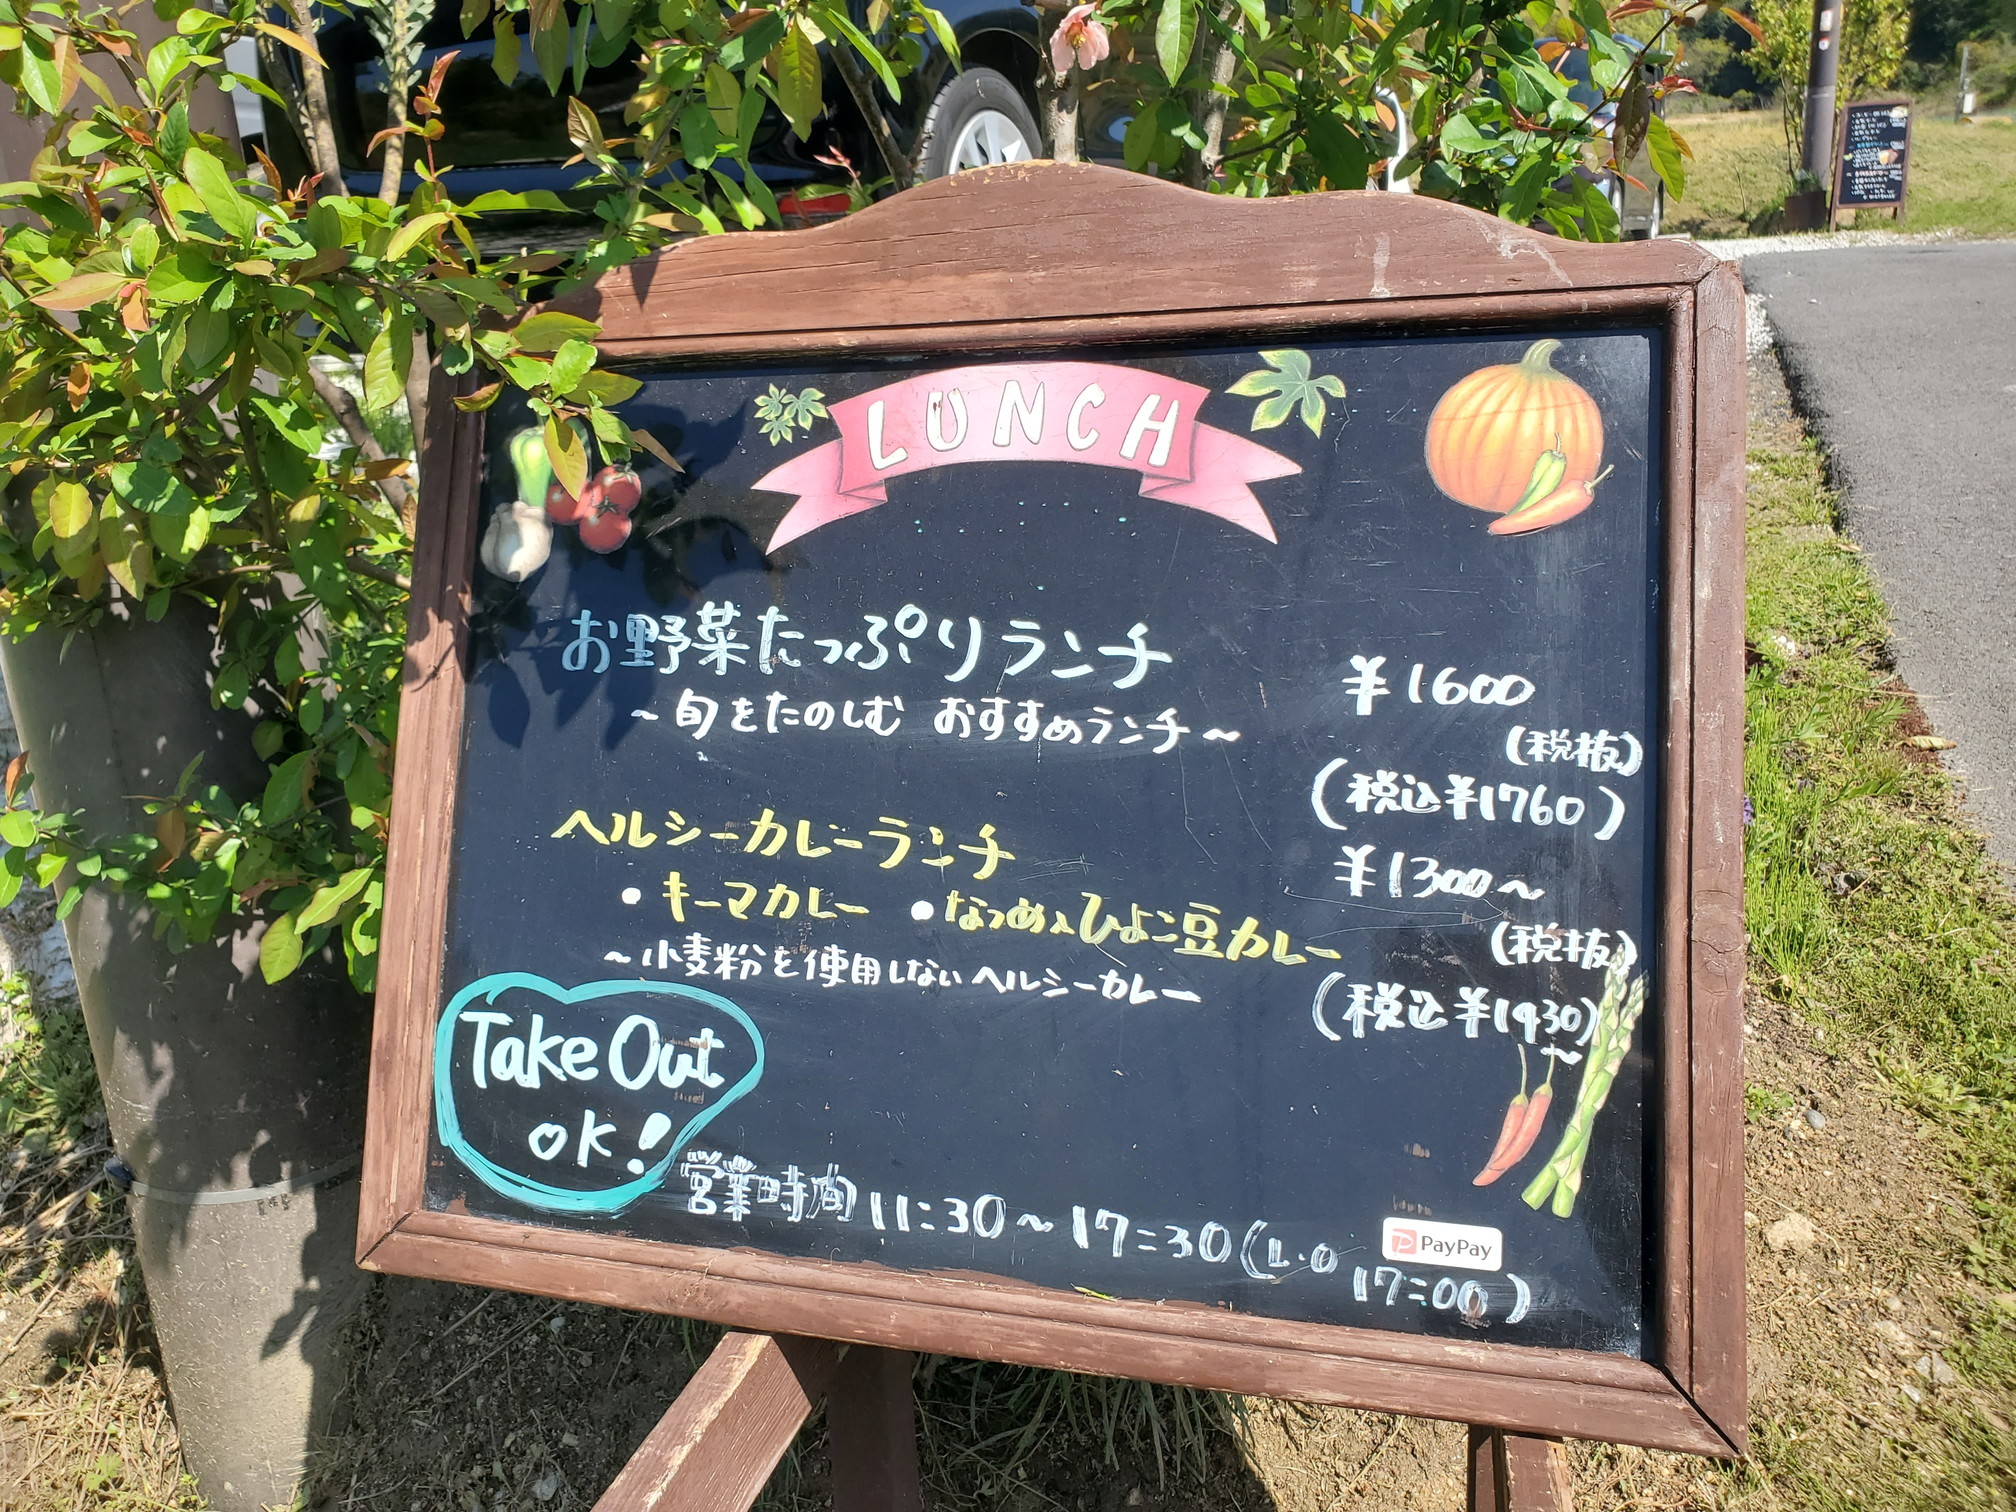 LUNCH
お野菜たっぷりランチ
¥1600
~旬をたのしむ おすすめランチ~
(税抜)
(税込¥1760)
ヘルシーカレーランチ
¥1300~
・キーマカレー ・なつめ入ひよこ豆カレー
(税抜)
~小麦粉を使用しないヘルシーカレー
(税込¥1430)
~
Take Out
OK!
営業時間 11:30~17:30(L.O
17:00)
PayPay